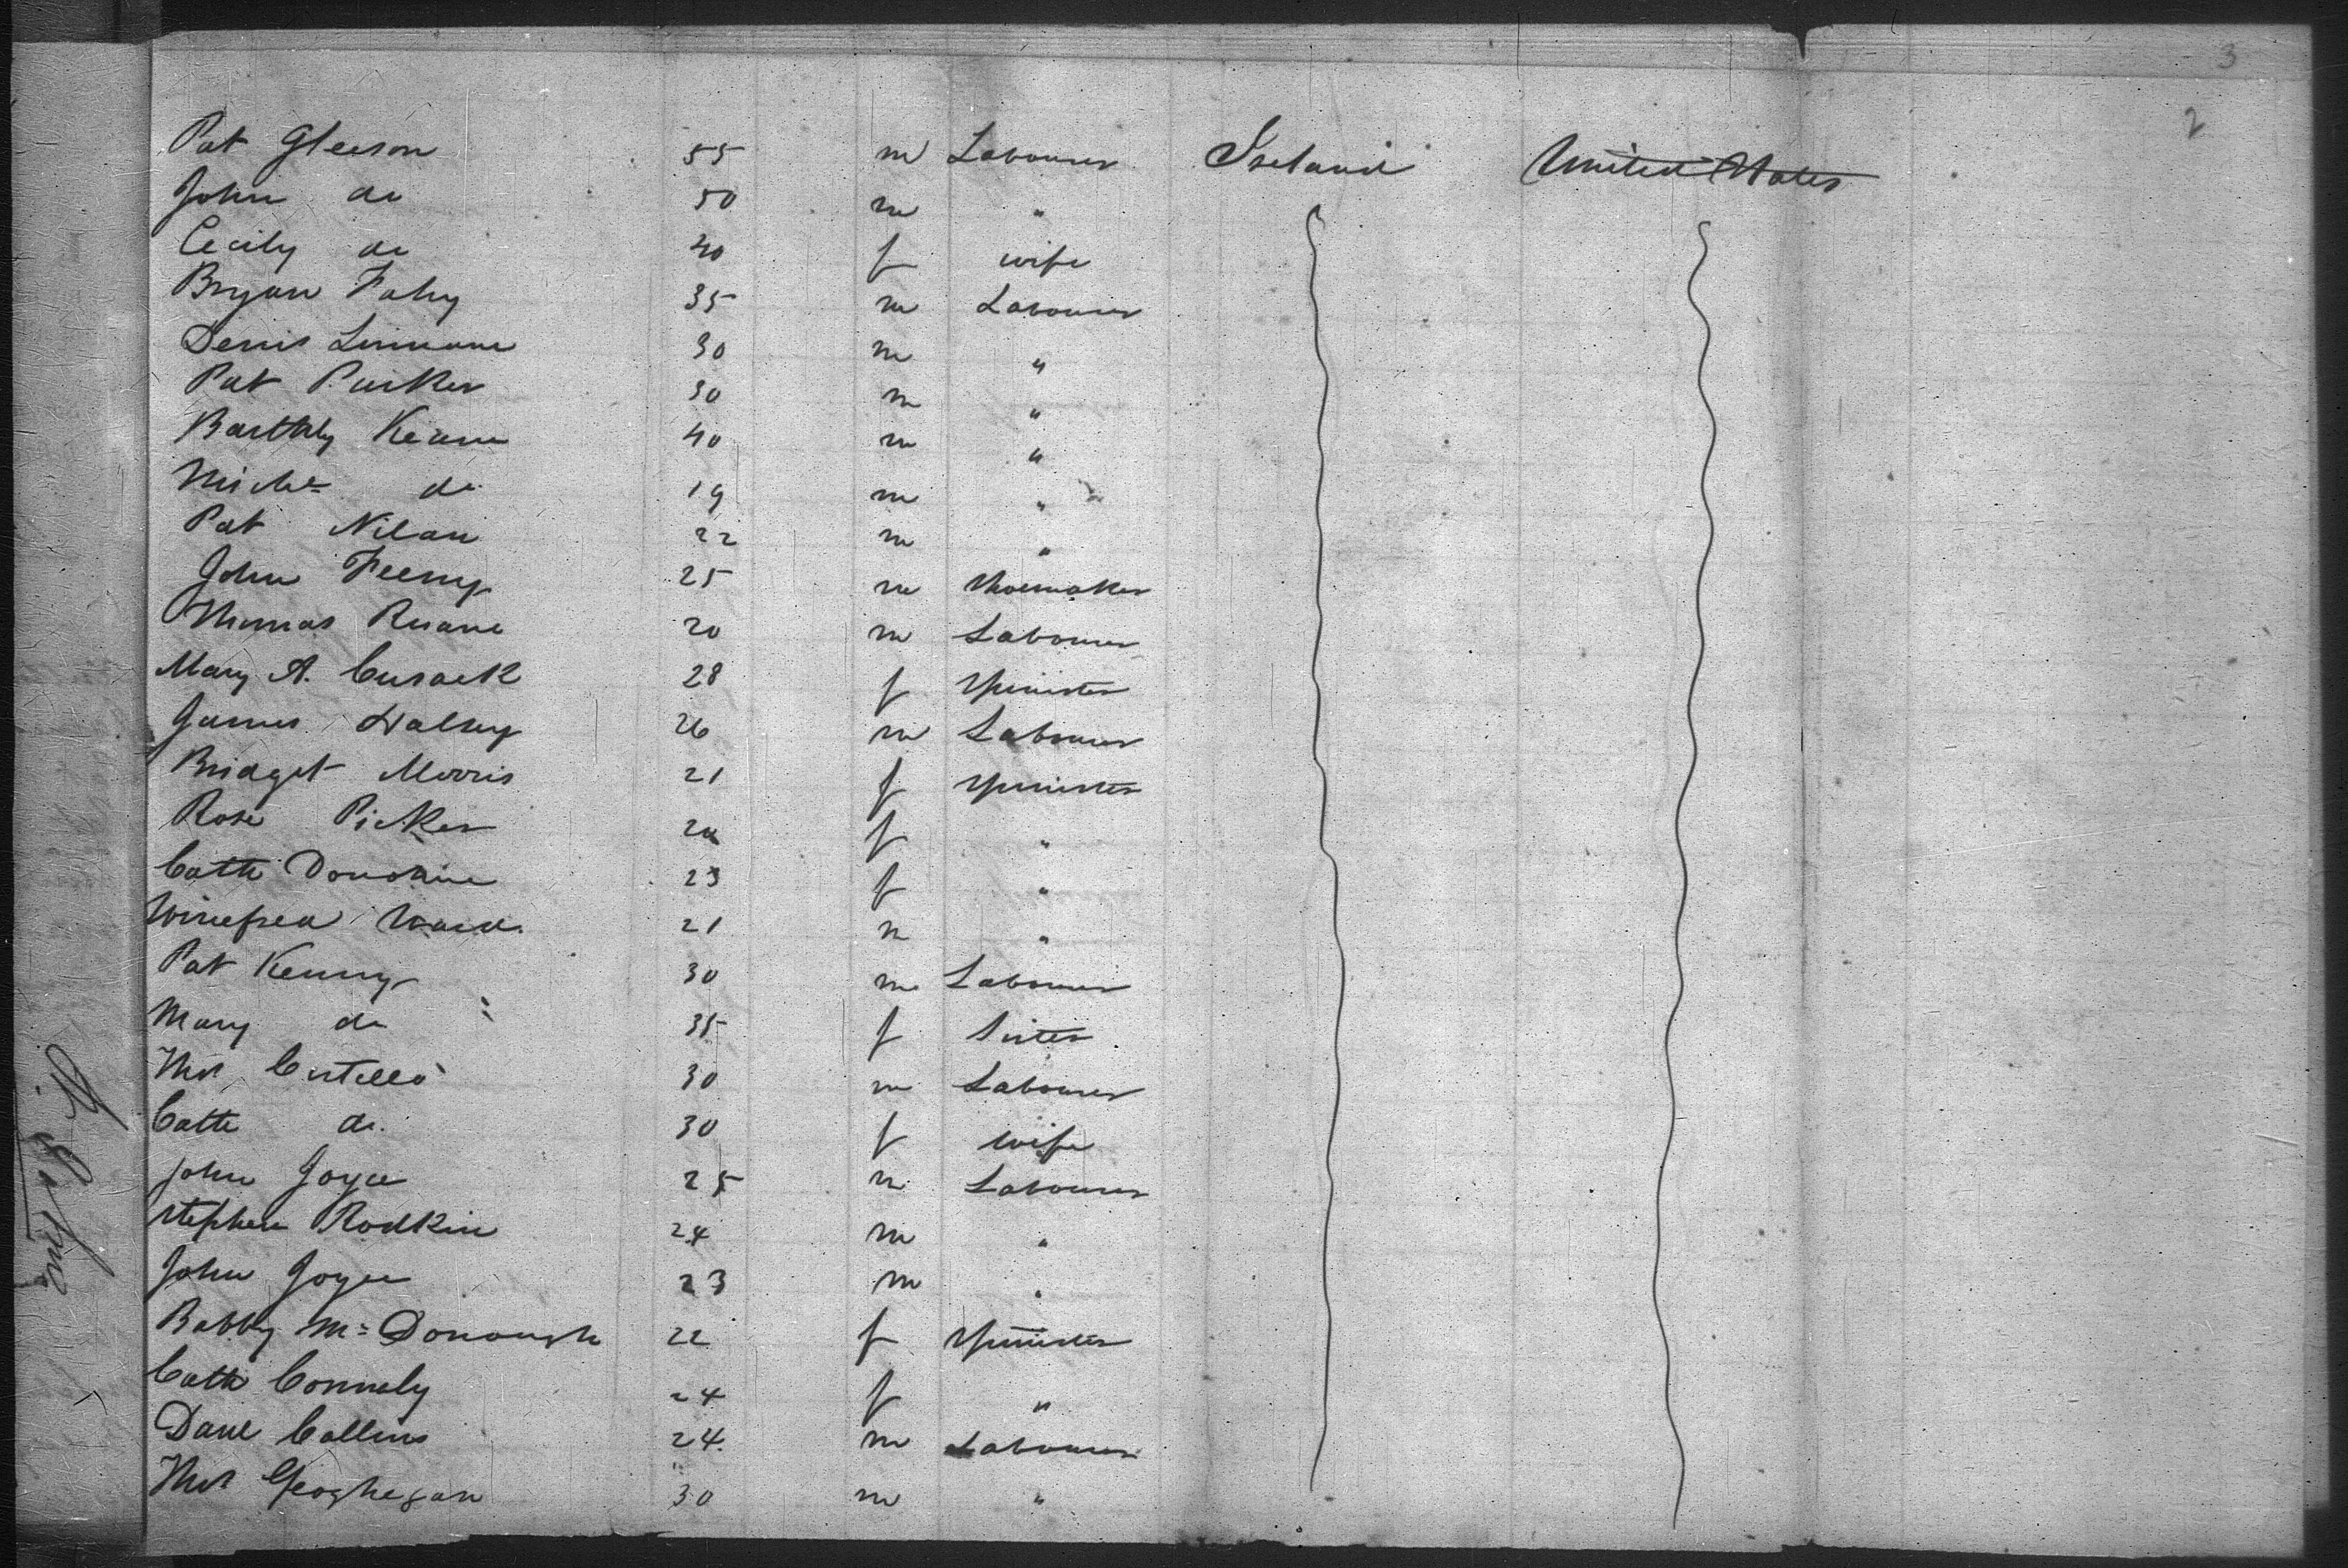 3
2
Pat Gleeson 55 m Labourer Ireland United States
John do 50 m "
Cecily do 40 f wife
Bryan Fahy 35 m Labourer
Denis Linnane 30 m "
Pat Parker 30 m "
Barthly Keane 40 m "
Michl do 19 m "
Pat Nilan 22 m "
John Feeny 25 m Shoemaker
Thomas Ruane 20 m Labourer
Mary A. Cusack 28 f Spinster
James Halley 26 m Labourer
Bridget Morris 21 f Spinster
Rose Picker f "
Cath Donohue 23 f "
Winefred Ward. 21 m "
Pat Kenny 30 m Labourer
Mary do 35 f Sister
Thos Costello 30 m Labourer
Cath do. 30 f wife
John Joyce 25 m Labourer
Stephen Rodkin 24 m "
John Joyce 23 m "
Babby Mc Donough 22 f Spinster
Cath Connely 24 f "
Danl Collins 24 m Labourer
Thos Geoghegan 30 m "